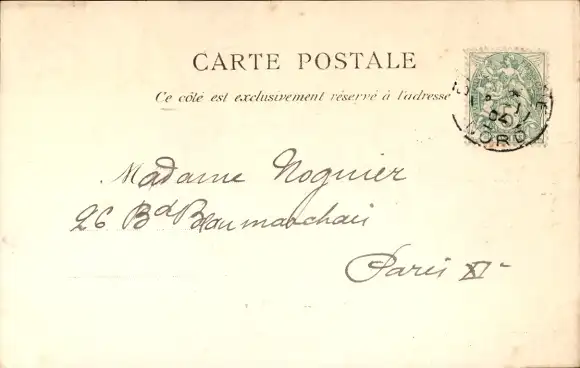 CARTE POSTALE
Ce côté est exclusivement réservé à l'adresse
04
NORD
Madame Noguier
26 Bd Beaumarchais
Paris XI